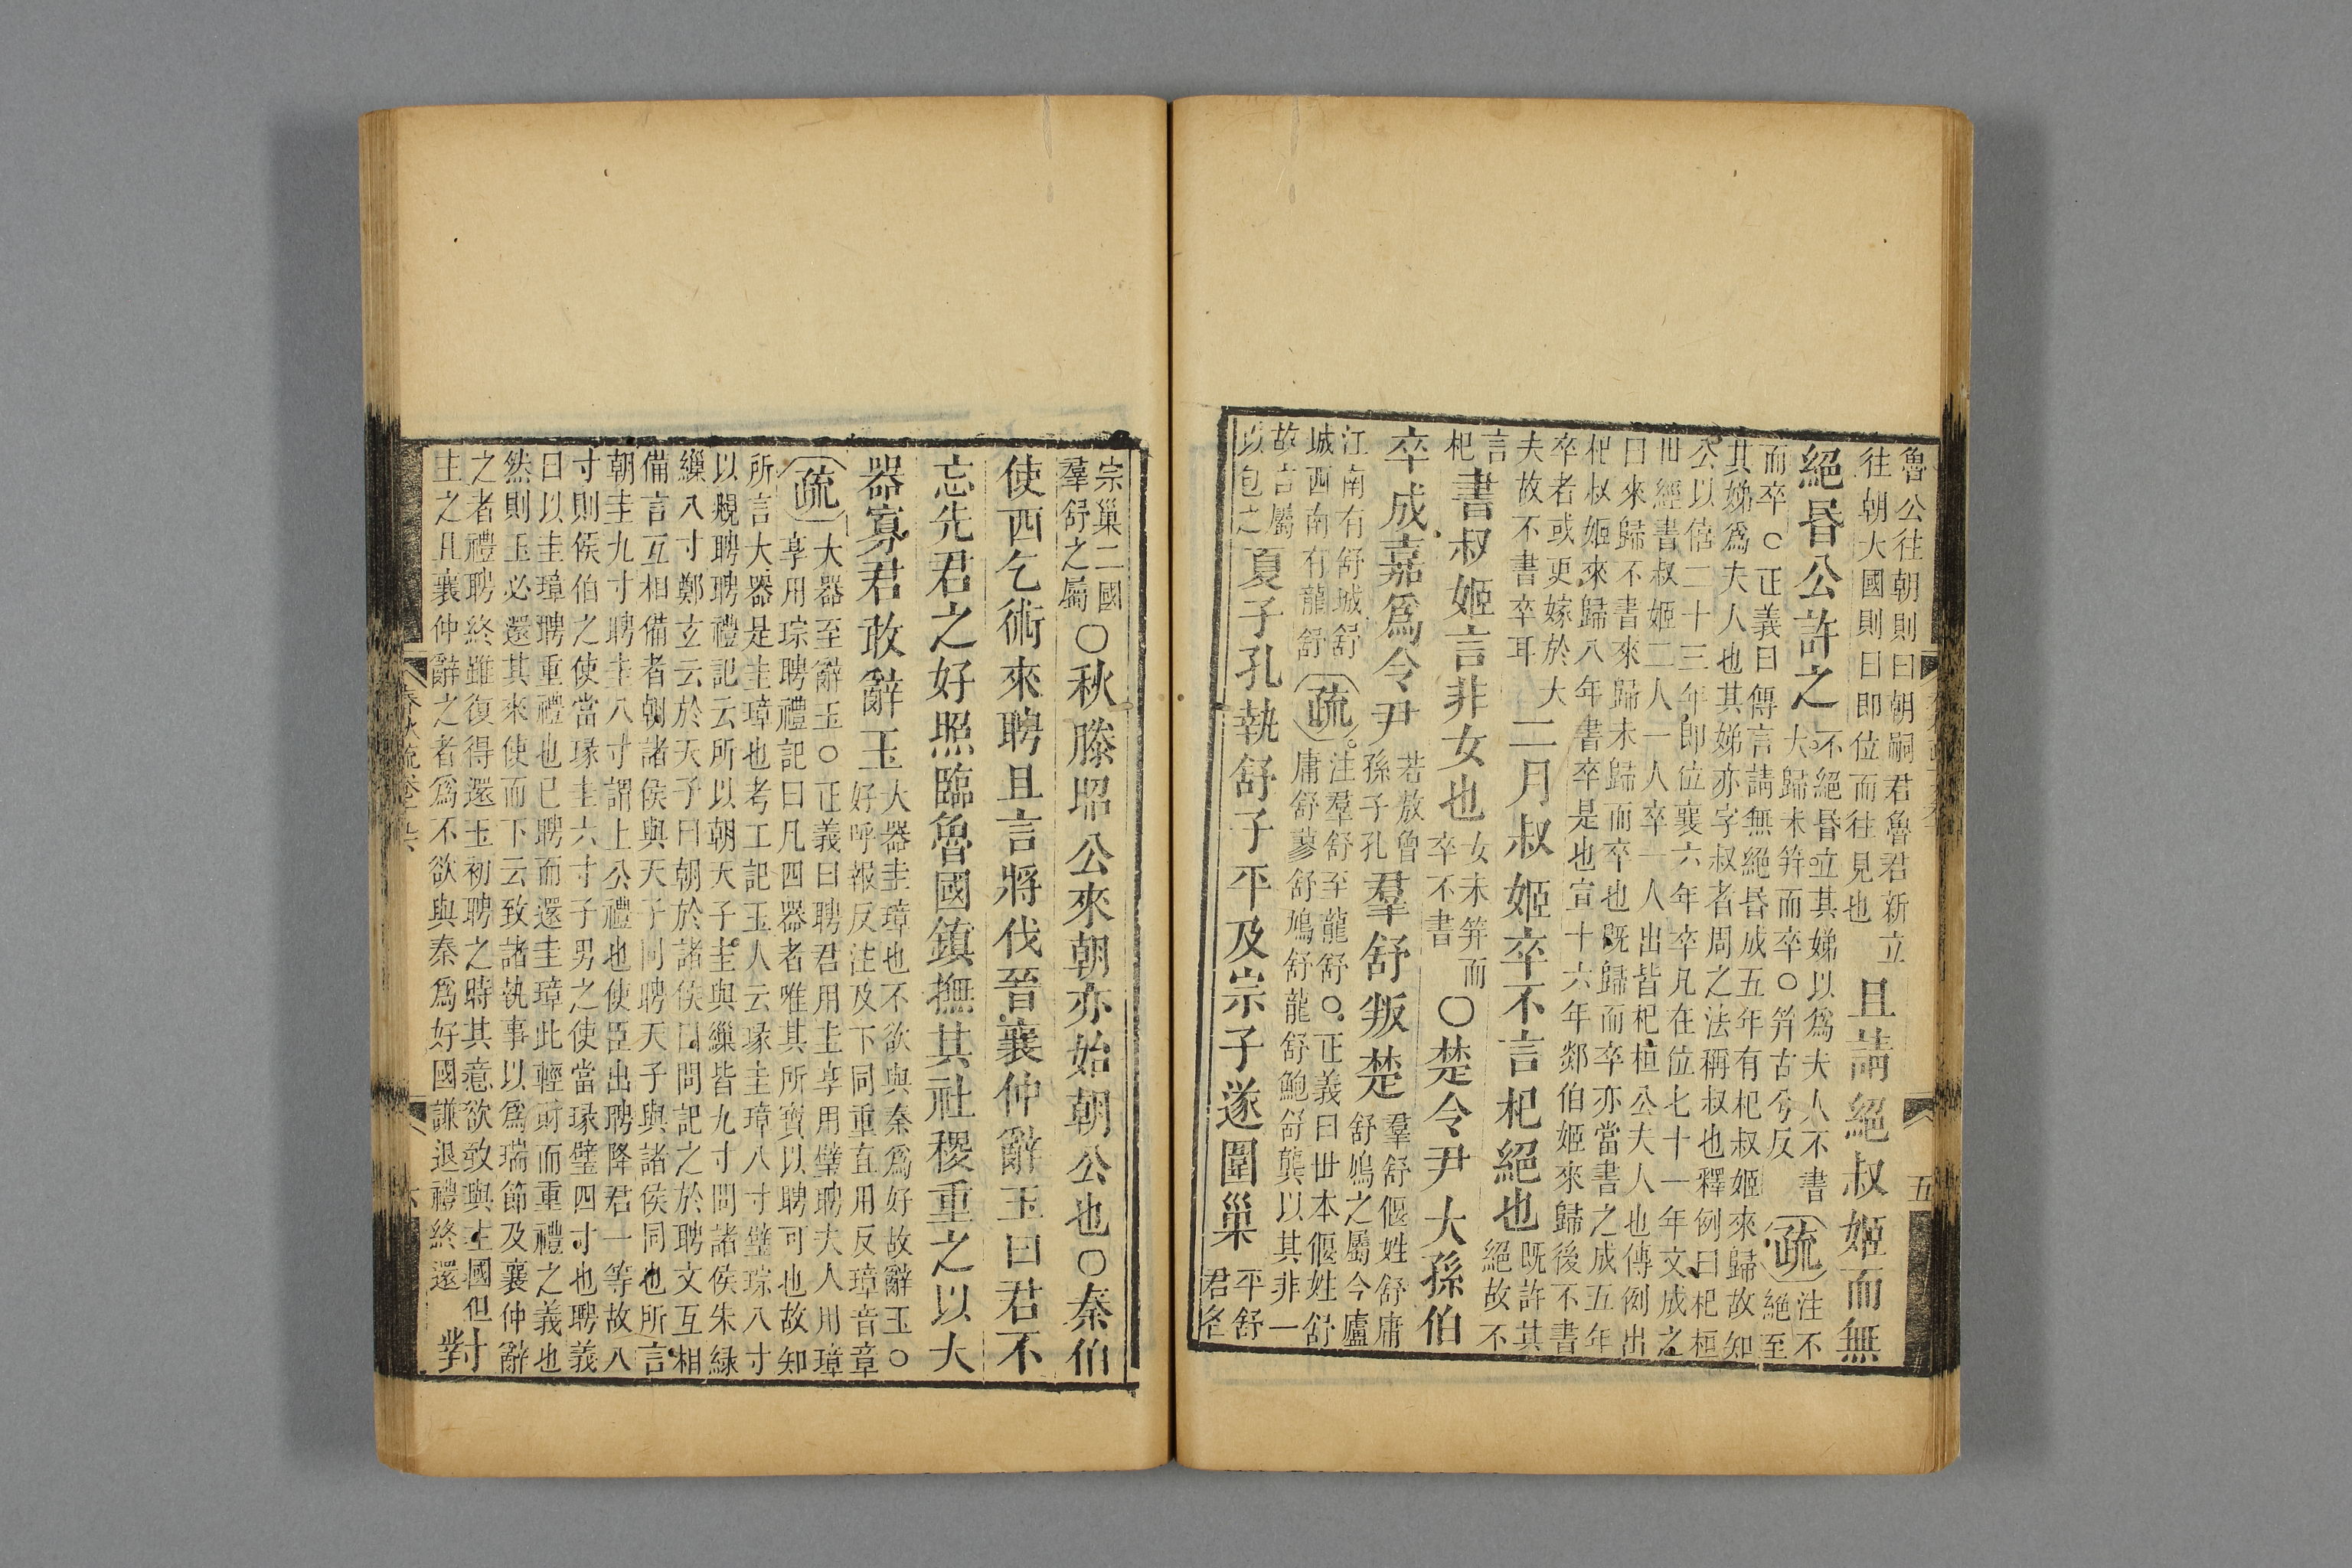 魯公往朝則曰朝嗣君魯君新立
往朝大國則曰即位而往見也
且請絕叔姬而無
絕昬公許之
不絕昬立其娣以爲夫人不書
大歸未笄而卒○笄古兮反
疏
注不
絕至
而卒○正義曰傳言請無絕昬成五年有杞叔姬來歸故知
其娣爲夫人也其娣亦字叔者周之法稱叔也釋例曰杞桓
公以僖二十三年即位襄六年卒凡在位七十一年文成之
世經書叔姬二人一人卒一人出皆杞桓公夫人也傳例出
曰來歸不書來歸未歸而卒也既歸而卒亦當書之成五年
杞叔姬來歸八年書卒是也宣十六年郯伯姬來歸後不書
卒者或更嫁於大
夫故不書卒耳
二月叔姬卒不言杞絕也
既許其
絕故不
言
杞
書叔姬言非女也
女未笄而
卒不書
○楚令尹大孫伯
卒成嘉爲令尹
若敖曾
孫子孔
羣舒叛楚
羣舒偃姓舒庸
舒鳩之屬今廬
江南有舒城舒
城西南有龍舒
疏
注羣舒至龍舒○正義曰世本偃姓舒
庸舒蓼舒鳩舒龍舒鮑舒龔以其非一
故言屬
以包之
夏子孔執舒子平及宗子遂圍巢
平舒
君名
宗巢二國
羣舒之屬
○秋滕昭公來朝亦始朝公也○秦伯
使西乞術來聘且言將伐晉襄仲辭玉曰君不
忘先君之好照臨魯國鎮撫其社稷重之以大
器寡君敢辭玉
大器圭璋也不欲與秦爲好故辭玉○
好呼報反注及下同重直用反璋音章
疏
大器至辭玉○正義曰聘君用圭享用璧聘夫人用璋
享用琮聘禮記曰凡四器者唯其所寶以聘可也故知
所言大器是圭璋也考工記玉人云瑑圭璋八寸璧琮八寸
以覜聘聘禮記云所以朝天子圭與繅皆九寸問諸侯朱綠
繅八寸鄭玄云於天子曰朝於諸侯曰問記之於聘文互相
備言互相備者朝諸侯與天子同聘天子與諸侯同也所言
朝圭九寸聘圭八寸謂上公禮也使臣出聘降君一等故八
寸則侯伯之使當瑑圭六寸子男之使當瑑璧四寸也聘義
曰以圭璋聘重禮也已聘而還圭璋此輕財而重禮之義也
然則玉必還其來使而下云致諸執事以爲瑞節及襄仲辭
之者禮聘終雖復得還玉初聘之時其意欲致與主國但
主之且襄仲辭之者爲不欲與秦爲好國謙退禮終還
對